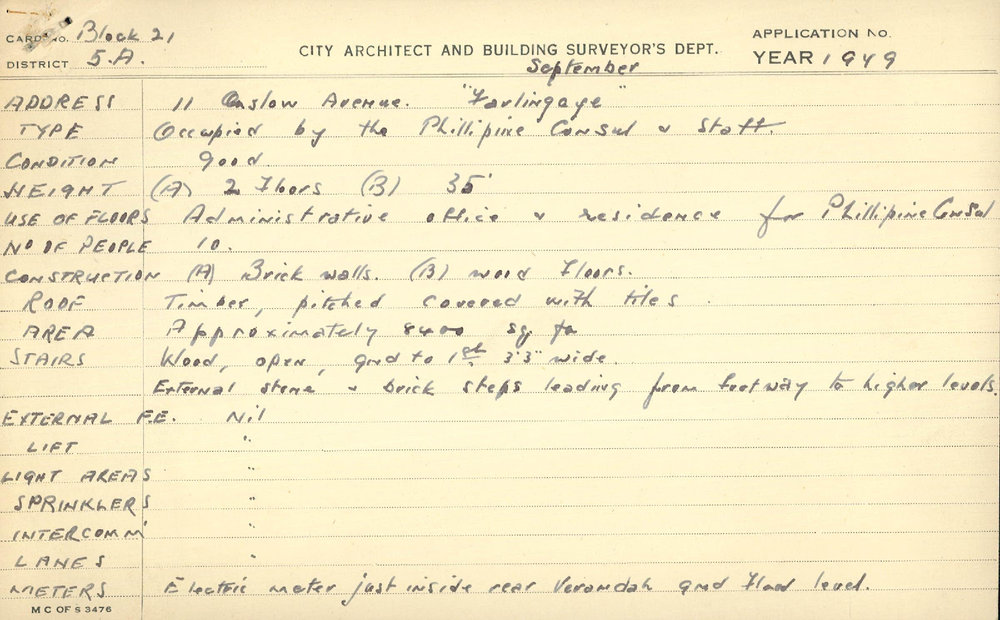 CARD No. Block 21
APPLICATION No.
CITY ARCHITECT AND BUILDING SURVEYOR'S DEPT.
DISTRICT 5.A.
September
YEAR 1949
ADDRESS 11 Onslow Avenue. "Farlingaye"
TYPE Occupied by the Phillipine Consul & Staff.
CONDITION good.
HEIGHT (A) 2 Floors (B) 35'
USE OF FLOORS Administrative office & residence for Phillipine Consul
No OF PEOPLE 10.
CONSTRUCTION (A) Brick walls. (B) wood Floors.
ROOF Timber, pitched covered with tiles
AREA Approximately 8400 sq.
STAIRS Wood, open, gnd to 1st 3'3" wide.
External stone & brick steps leading from footway to higher levels.
EXTERNAL F.E. Nil
LIFT "
LIGHT AREAS "
SPRINKLERS "
INTERCOMM' "
LANES "
METERS Electric meter just inside rear Verandah gnd level.
M C OF S 3476